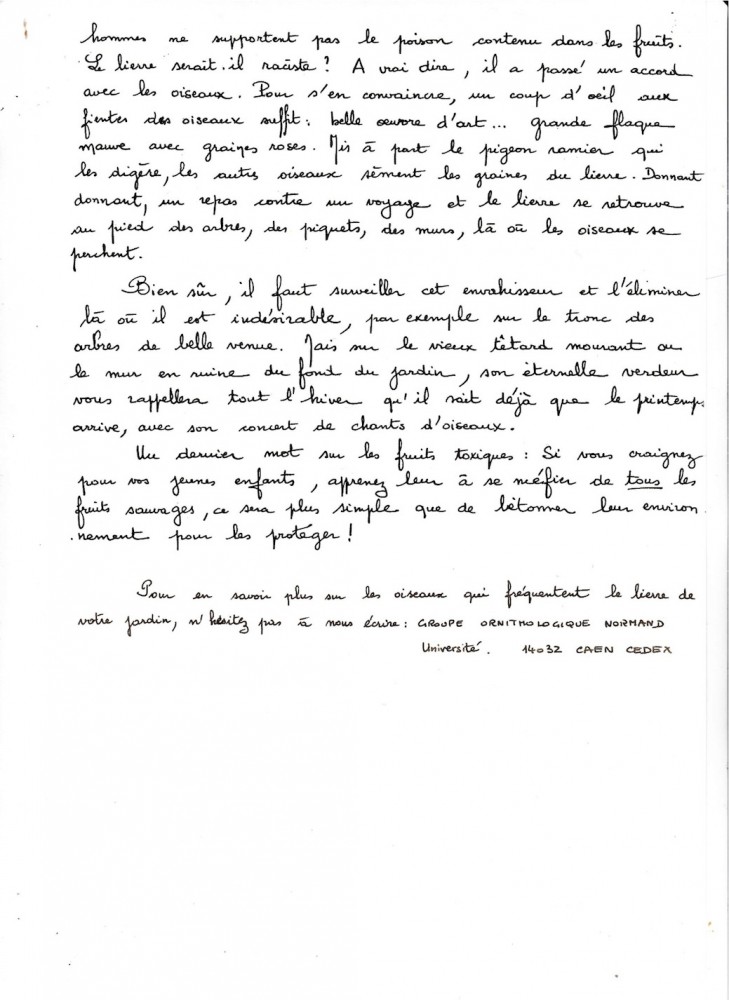 hommes ne supportent pas le poison contenu dans les fruits.
Le lierre serait-il raciste ? A vrai dire, il a passé un accord
avec les oiseaux. Pour s'en convaincre, un coup d'oeil aux
fientes des oiseaux suffit : belle oeuvre d'art... grande flaque
mauve avec graines roses. Mis à part le pigeon ramier qui
les digère, les autres oiseaux sèment les graines du lierre. Donnant
donnant, un repas contre un voyage et le lierre se retrouve
au pied des arbres, des piquets, des murs, là où les oiseaux se
perchent.
Bien sûr, il faut surveiller cet envahisseur et l'éliminer
là où il est indésirable, par exemple sur le tronc des
arbres de belle venue. Mais sur le vieux têtard mourant ou
le mur en ruine du fond du jardin, son éternelle verdeur
vous rappellera tout l'hiver qu'il sait déjà que le printemps
arrive, avec son concert de chants d'oiseaux.
Un dernier mot sur les fruits toxiques : Si vous craignez
pour vos jeunes enfants, apprenez leur à se méfier de tous les
fruits sauvages, ce sera plus simple que de bétonner leur environ
-nement pour les protéger !
Pour en savoir plus sur les oiseaux qui fréquentent le lierre de
votre jardin, n'hésitez pas à nous écrire : GROUPE ORNITHOLOGIQUE NORMAND
Université. 14032 CAEN CEDEX